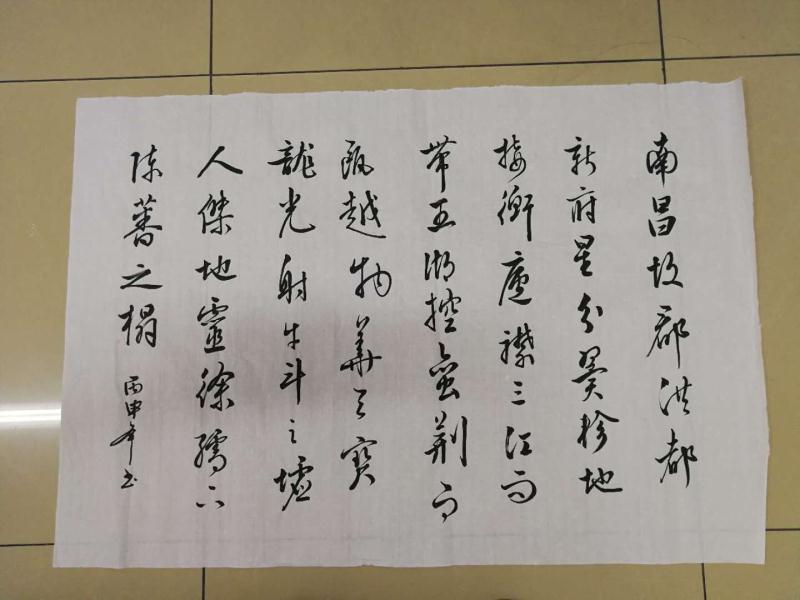 南昌故郡洪都
新府星分翼轸地
接衡庐襟三江而
带五湖控蛮荆而
瓯越物華天寳
龍光射牛斗之墟
人傑地靈徐孺下
陈蕃之榻
丙申年书